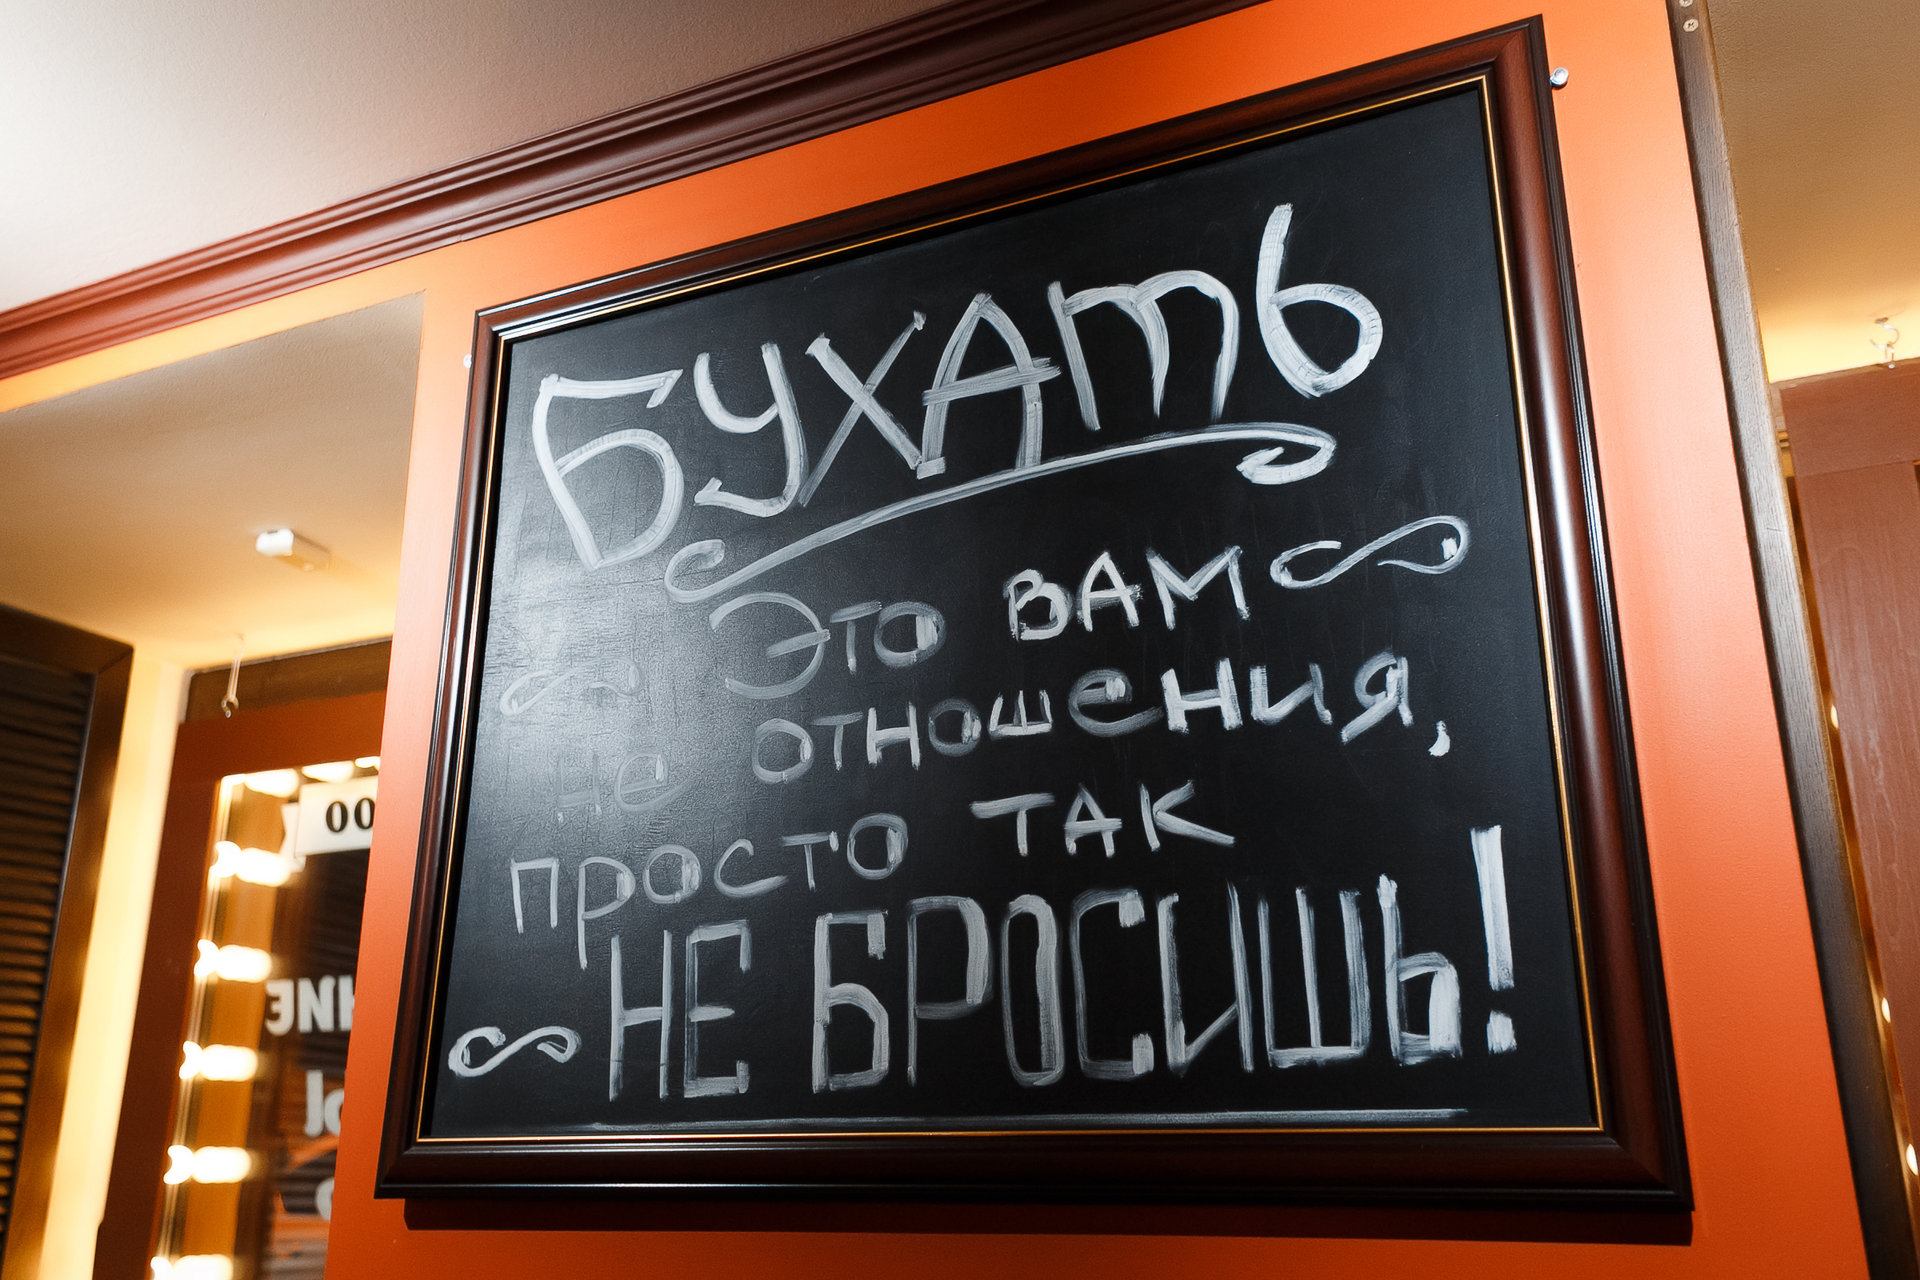 БУХАТЬ
ЭТО ВАМ
НЕ ОТНОШЕНИЯ,
ПРОСТО ТАК
НЕ БРОСИШЬ!
00